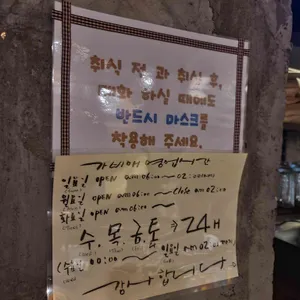 취식 전 과 취식 후,
대화 하실 때에도
반드시 마스크를
착용해 주세요.
가비애 영업시간
일요일 OPEN am06:00 ~ 02:00
월요일 OPEN am06:00 ~ Close am 02:00
화요일 OPEN am06:00 ~
수.목.금.토 24H
00:00 ~ 일요일 am 02:00
감사합니다